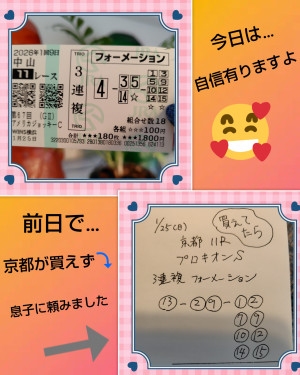 今日は...
自信有りますよ
フォーメーション
中山
11レース
3連複
4
35
14
☆
☆
組合せ数18
各組 ☆☆☆100円
合計 ☆☆☆180枚 ☆☆☆1800円
アメリカジョッキーC
1月25日
前日で...
京都が買えず
息子に頼みました
1/25(日)
買えてたら
京都 11R
プロキオンS
3連複 フォーメーション
⑬-②⑨-①②
⑦⑨
⑩⑫
⑭⑮